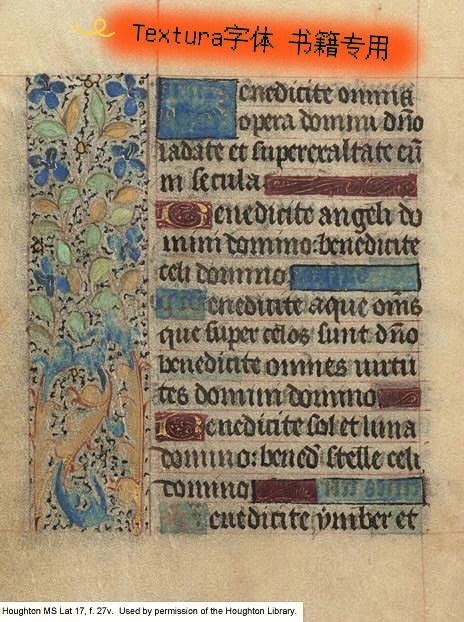 Textura字体 书籍专用
Benedicite omnia
opera domini dño
ladate et superexaltate eũ
in secula
Benedicite angeli do
mini domino: benedicite
celi domino
Benedicite aque oms̃
que super celos sunt dño
benedicite omnes virtu
tes domini domino
Benedicite sol et luna
domino: bened̃ stelle celi
domino
Benedicite ymber et
Houghton MS Lat 17, f. 27v. Used by permission of the Houghton Library.